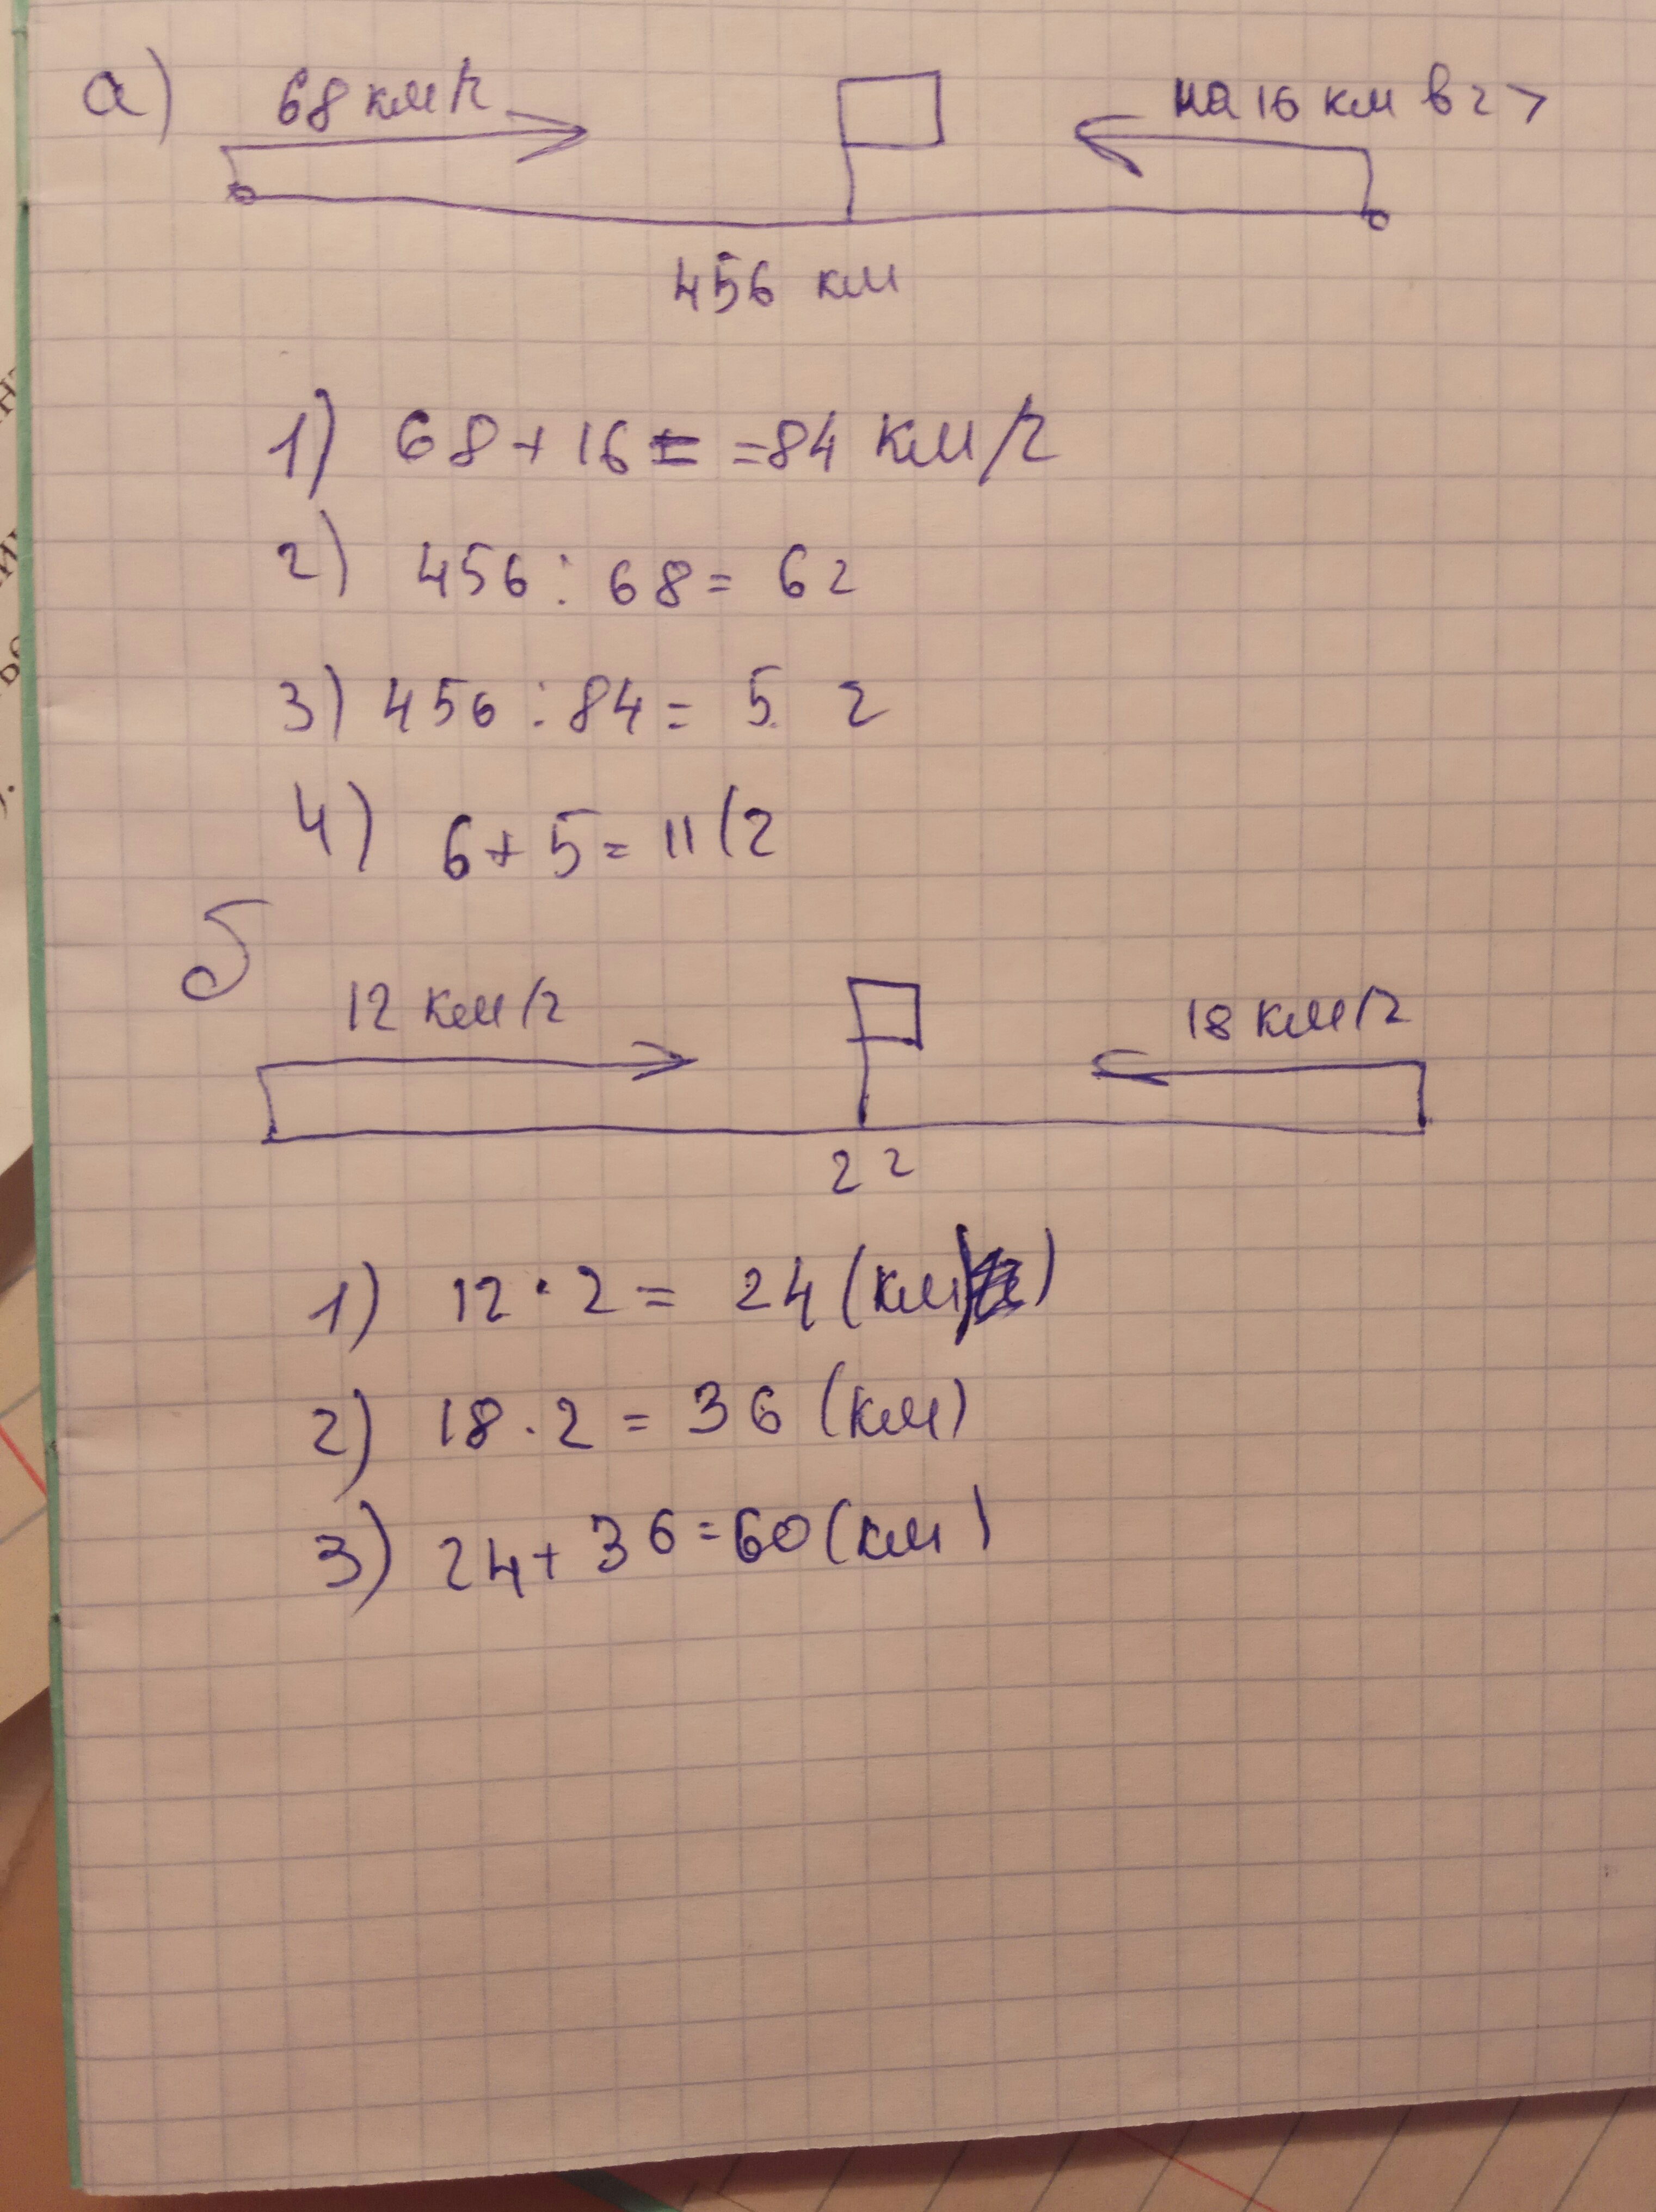 а) 68 км/ч на 16 км в ч >
456 км
1) 68 + 16 = = 84 км/ч
2) 456 : 68 = 6 ч
3) 456 : 84 = 5 ч
4) 6 + 5 = 11 (ч
б
12 км/ч 18 км/ч
2 ч
1) 12 · 2 = 24 (км)
2) 18 · 2 = 36 (км)
3) 24 + 36 = 60 (км)